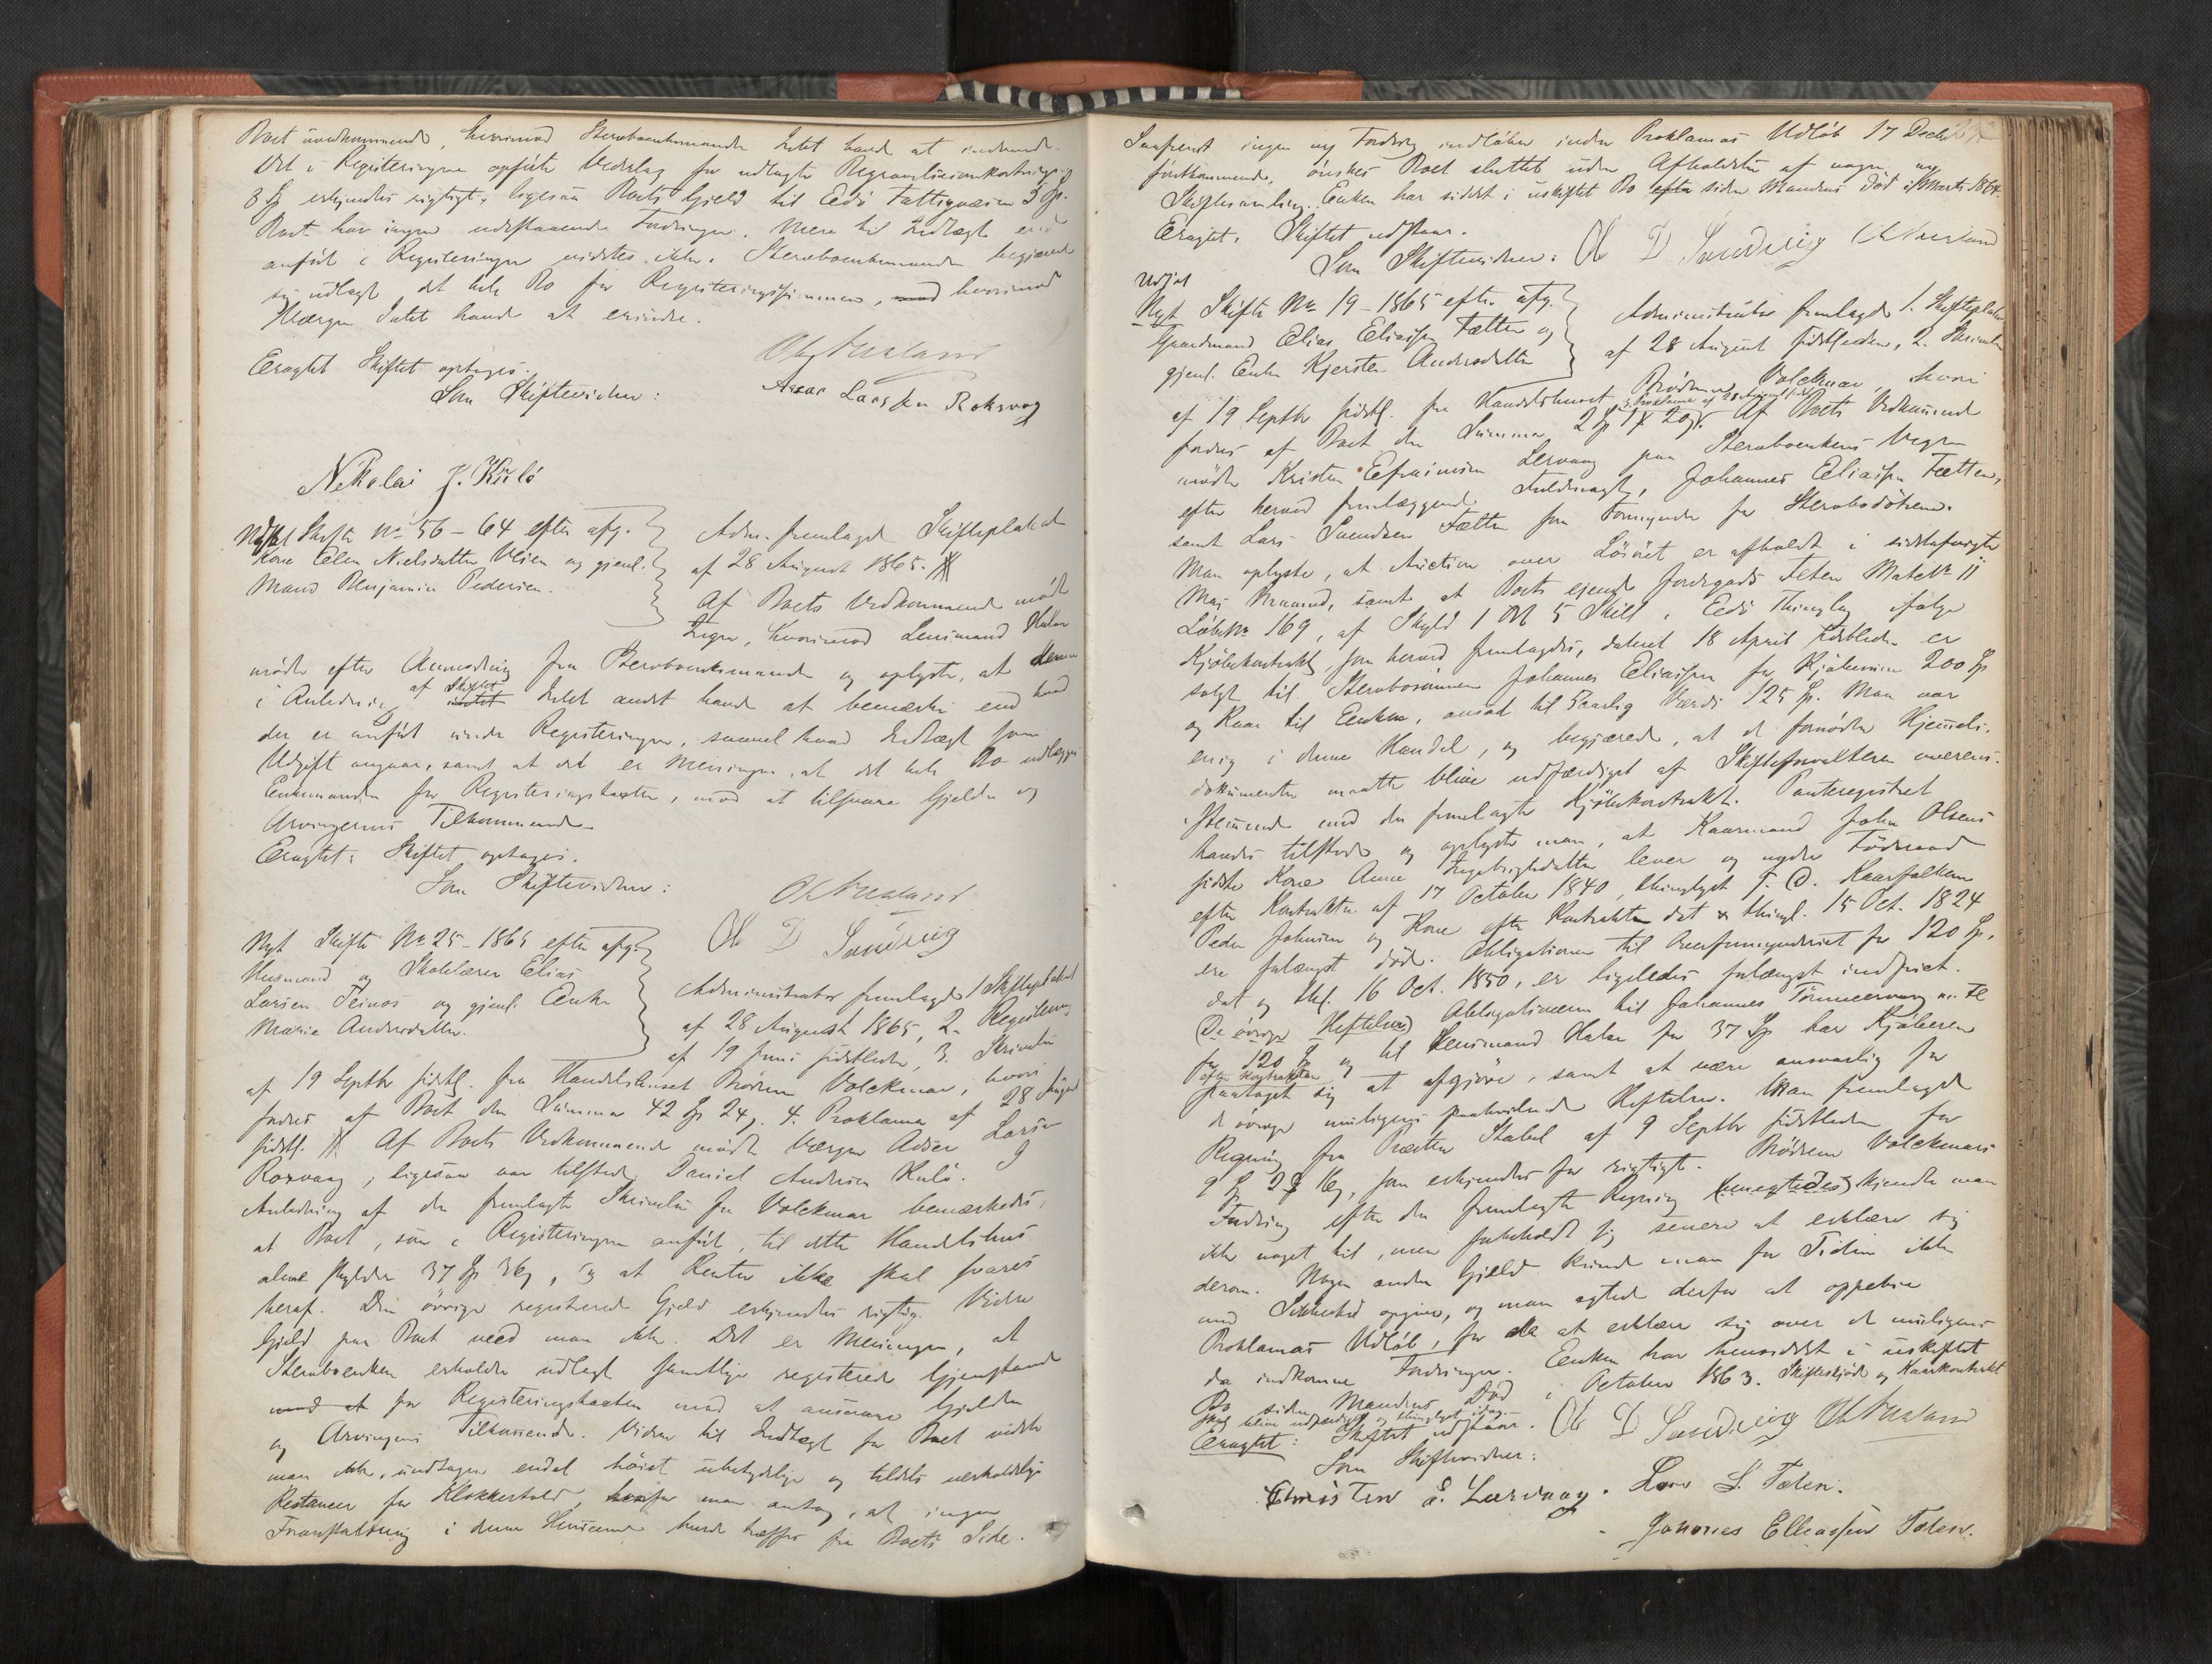 Boet uvedkommende, hvorimod Sterboenkemanden Intet havde at indvende.
Det i Registeringen opførte Vederlag for udlagte
3 Sp erkjendtes rigtigt, ligesaa Boets Gjeld til Edø Fattigvæsen 5 Sp.
Boet har ingen udestaaende Fordringer. Mere til Indtægt end
anført i Registeringen vidstes ikke. Sterboenkemanden begjærede
sig udlagt det hele Bo for Registeringssummen, hvorimod
Værgen Intet havde at erindre.
Eragtet Skiftet optages.
Som Skiftevidner:
Assar Larssen Roksvog
Nikolai J. Kulö
Skifte No 56 - 64 efter afg.
Kone Elen Nielsdatter Veien og gjenl.
Mand Benjamin Pedersen.
Adm. fremlagde Skifteplakat
af 28 August 1865.
Af Boets Vedkommende mødte
Ingen, hvorimod Lensmand
mødte efter Anmodning fra Sterboenkemanden og oplyste, at denne
i Anledning af Skiftet Intet andet havde at bemærke end hvad
der er anført under Registeringen, saavel hvad Indtægt som
Udgift angaar, samt at det er Meningen, at det hele Bo udlægges
Enkemanden for Registeringstaxten, mod at tilsvare Gjelden og
Arvingernes Tilkommende.
Eragtet: Skiftet optages.
Som Skiftevidner:
Ole D Sandvig
Nyt Skifte No 25 - 1865 efter afg.
Husmand og Skolelærer Elias
Larsen Teinæs og gjenl. Enke
Marie Andersdatter.
Administrator fremlagde 1 Skifteplakat
af 28 August 1865, 2. Registering
af 19 Juni sidstleden, 3. Skrivelse
af 19 Septbr sidstl. fra Handelshuset Brødrene Volckmar, hvori
fordres af Boet den Summa 42 Sp 24 s. 4. Proklama af 28 August
sidstl. Af Boets Vedkommende mødte Værgen Adser Larsen
Roxvaag, ligesaa var tilstede Daniel Andersen Kulö. I
Anledning af den fremlagte Skrivelse fra Volckmar bemærkedes,
at Boet, som i Registeringen anført, til dette Handelshus
alene skylder 37 Sp, og at Renter ikke skal svares
heraf. Den øvrige registrerede Gjeld erkjendtes rigtig. Videre
Gjeld paa Boet veed man ikke. Det er Meningen, at
Sterboenken erholder udlagt samtlige registrerede Gjenstande
mod at for Registeringstaxten mod at ansvare Gjelden
og Arvingens Tilkommende. Videre til Indtægt for Boet vidste
man ikke, undtagen endel høist ubetydelige og tildels uerholdelige
Restancer for Klokkertold, hvorfor man antog, at ingen
Foranstaltning i denne Henseende burde træffes fra Boets Side.
Saafremt ingen ny Fordring indløber inden Proklamas Udløb 17 Decbr
førstkommende, ønskes Boet sluttet uden Afholdelse af nogen ny
Skiftesamling. Enken har siddet i uskiftet Bo efter siden Mandens Død i Marts 1864.
Eragtet, Skiftet udstaar.
Som Skiftevidner: Ole D Sandvig
Nyt Skifte No 19 - 1865 efter afg.
Gaardmand Elias Eliassen Fætten og
gjenl. Enke Kjersten Andersdatter
Administrator fremlagde 1. Skifteplakat
af 28 August sidstleden, 2. Skrivelse
af 19 Septbr sidstl. fra Handelshuset Brødrene Volckmar, hvori
3. Proklama af 28 August sidstl.
fordres af Boet den Summa 2 Sp. Af Boets Vedkommende
mødte Kristen Efraimsen Lervaag paa Sterboenkens Vegne
efter herved fremlæggende Fuldmagt, Johannes Eliassen Fætten,
samt Lars Svendsen Fætten som Formynder for Sterbodøtrene.
Man oplyste, at Auction over Løsøret er afholdt i sidstafvigte
Mai Maaned, samt at Boets eiende Jordegods Feten Matr No 11
Løbe No 169, af Skyld 1 Ort 5 Skill, Edø Thinglag ifølge
Kjøbekontrakt, som herved fremlagdes, dateret 18 April sidstleden er
solgt til Sterbosønnen Johannes Eliassen for Kjøbesum 200 Sp
og Kaar til Enken, ansat til 5aarlig Værdi 125 Sp. Man var
enig i denne Handel, og begjærede, at de fornødne Hjemels-
dokumenter maatte blive udfærdiget af Skifteforvalteren overens-
stemmende med den fremlagte Kjøbekontrakt. Panteregistret
havdes tilstede og oplyste man, at Kaarmand John Olsens
sidste Kone Anne Ingebrigtsdatter lever og nyder Føderaad
efter Kontrakten af 17 October 1840, thinglyst s. D. Kaarfolkene
Peder Johnsen og Kone efter Kontrakten dat & thingl. 15 Oct. 1824
ere forlængst døde. Obligationen til Overformynderiet for 120 Sp,
dat og thl. 16 Oct. 1850, er ligeledes forlængst indfriet.
De øvrige Heftelser) Obligationen til Johannes Tømmervaag
for 120 Sp og til Lensmand for 37 Sp har Kjøberen
efter Kontrakten
paataget sig at afgjøre, samt at være ansvarlig for
de øvrige muligens paahvilende Heftelser. Man fremlagde
Regning fra Præsten Stabel af 9 Septbr sidstleden for
9 Sp, som erkjendtes for rigtigt. Brødrene Volckmars
Fordring efter den fremlagte Regning (benegtedes) kjendte man
ikke noget til, men forbeholdt sig senere at erklære sig
derom. Nogen anden Gjeld kunde man for Tiden ikke
med Sikkerhed opgive, og man agtede derfor at oppebie
Proklamas Udløb, for da at erklære sig over de muligens
da indkomne Fordringer. Enken har hensiddet i uskiftet
Bo siden Mandens Død i October 1863. Skifteskjøde og Kaarkontrakt
skal blive udfærdiget og thinglyst idag.
Eragtet: Skiftet udstaar. Ole D Sandvig
Som Skiftevidner:
Christen E. Leervaag. Lars S. Fæten.
Johanes Elliassen Fæten.